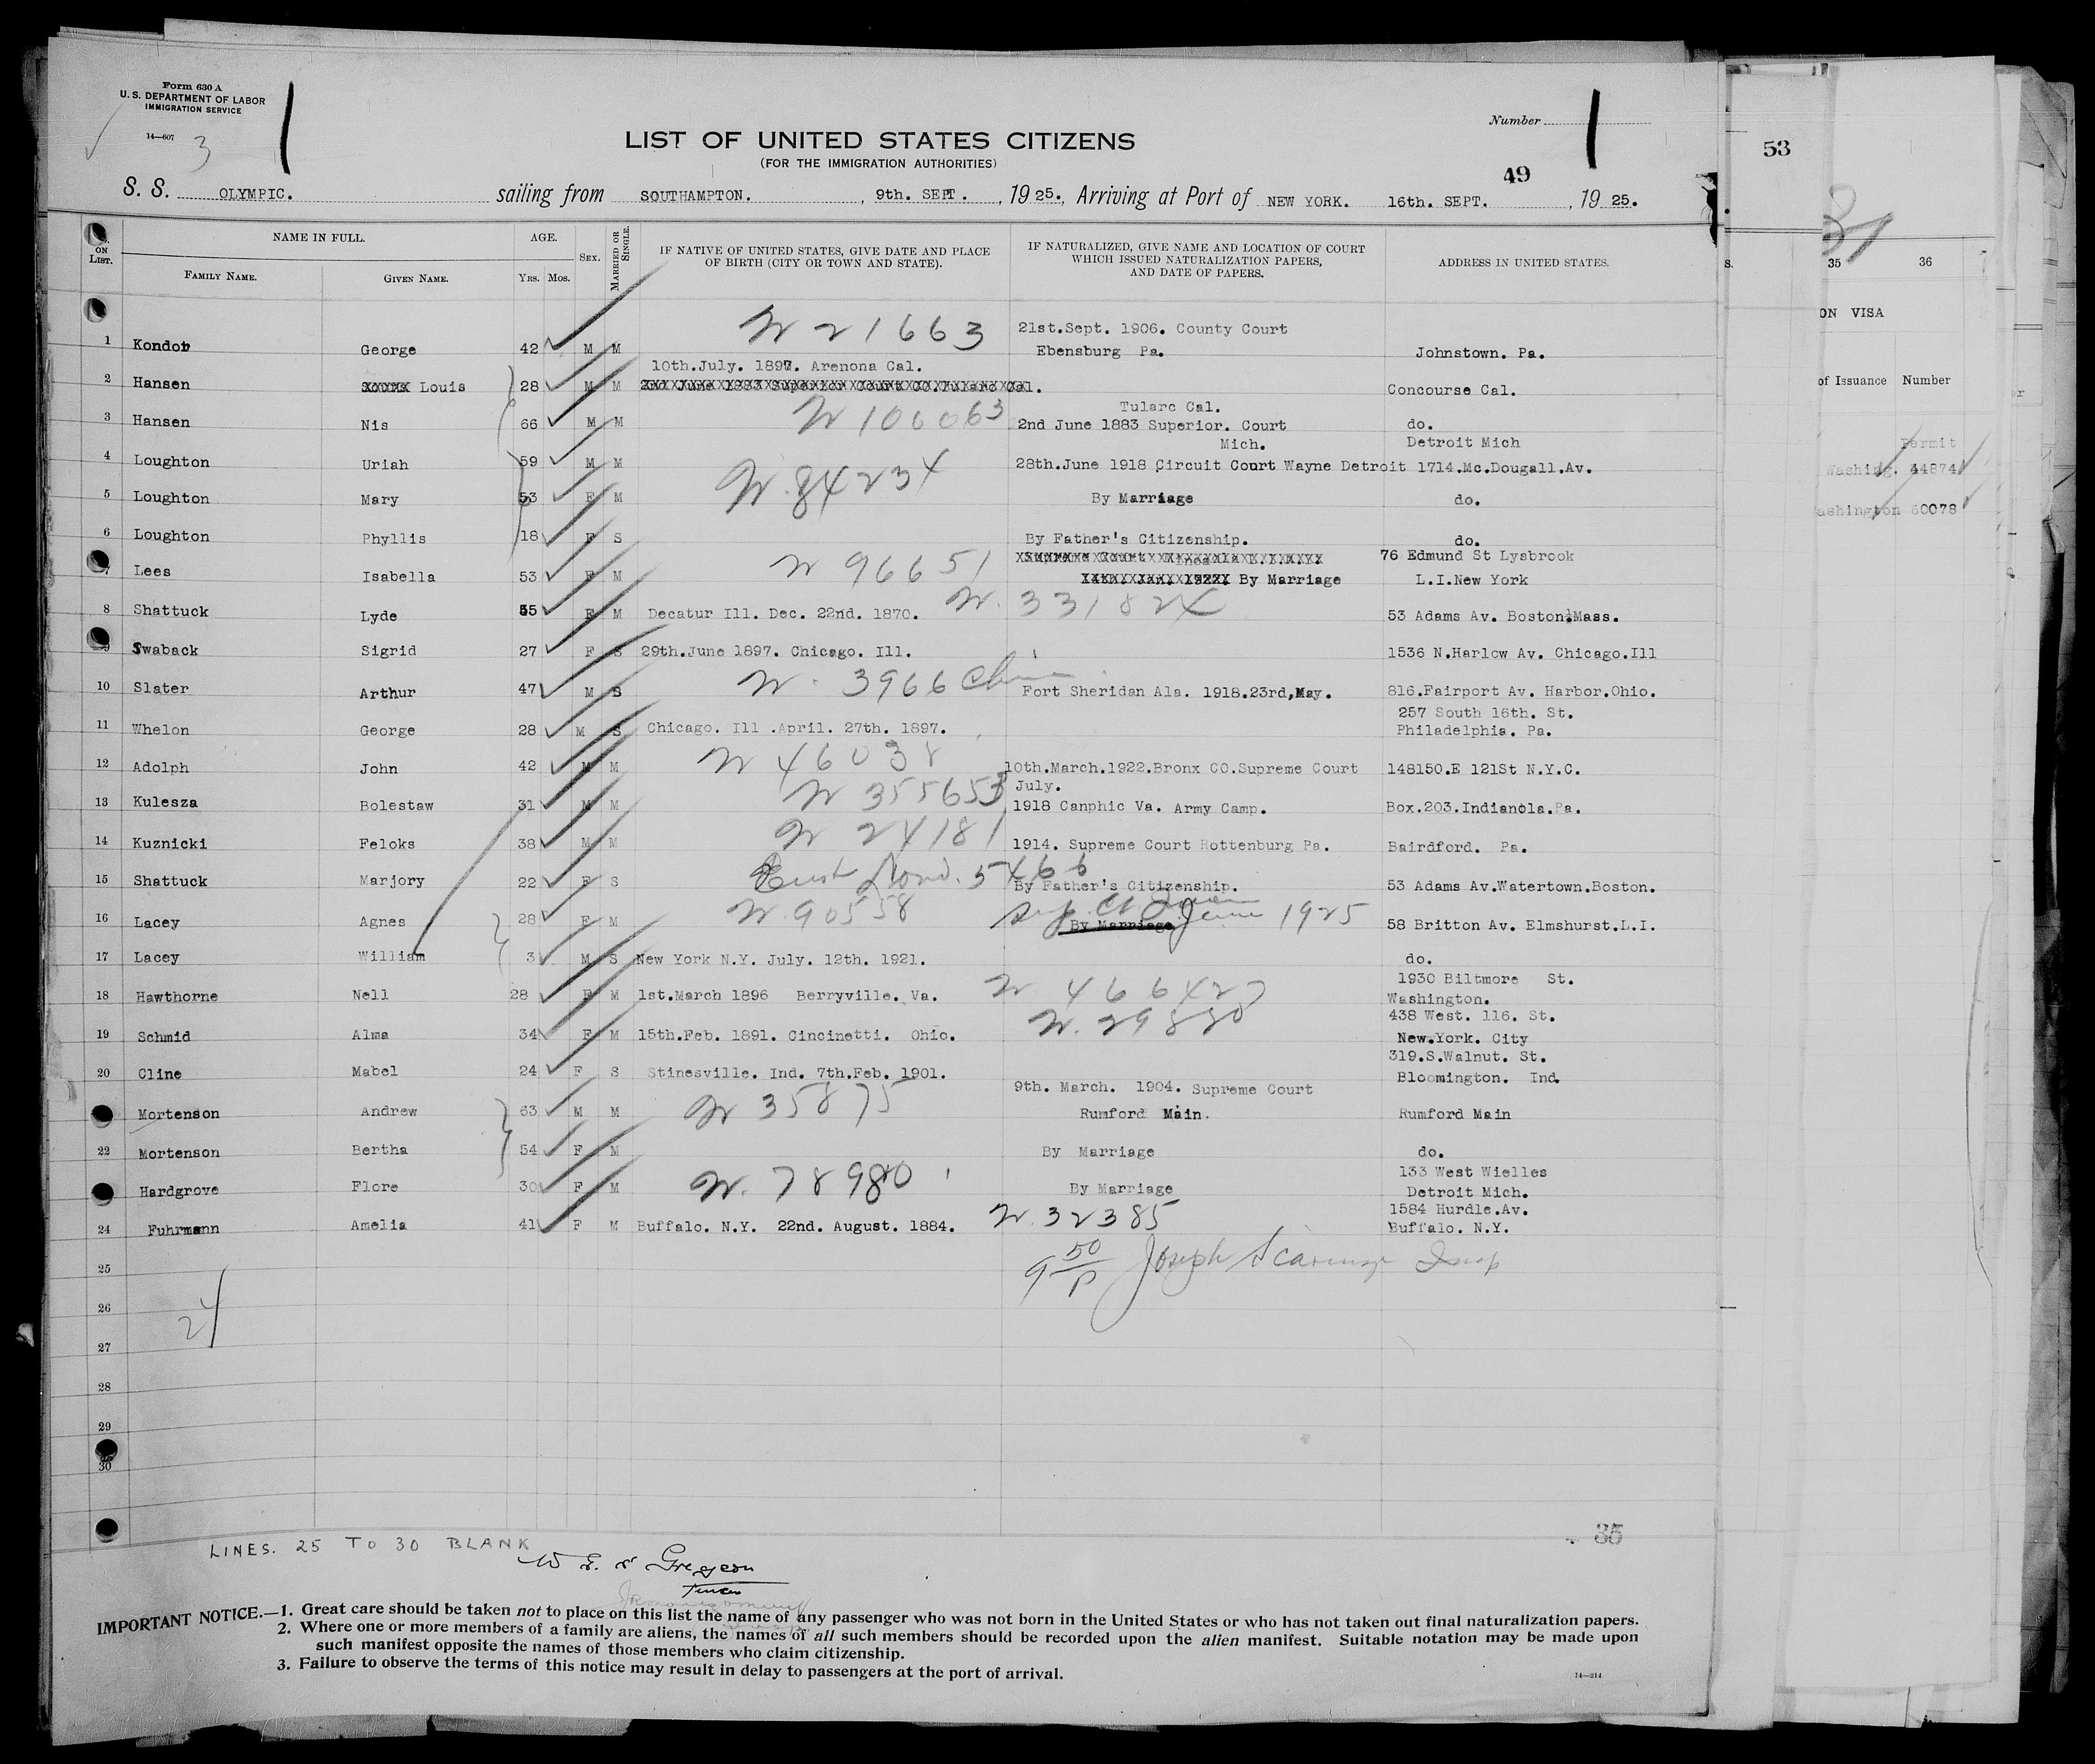 Form 630 A
U. S. DEPARTMENT OF LABOR
IMMIGRATION SERVICE
14—607
3
1
Number 1
LIST OF UNITED STATES CITIZENS
(FOR THE IMMIGRATION AUTHORITIES)
49
S. S. OLYMPIC. sailing from SOUTHAMPTON. , 9th. SEPT. , 19 25., Arriving at Port of NEW YORK. 16th. SEPT. , 19 25.
ON LIST. NAME IN FULL. AGE. SEX. MARRIED OR SINGLE. IF NATIVE OF UNITED STATES, GIVE DATE AND PLACE OF BIRTH (CITY OR TOWN AND STATE). IF NATURALIZED, GIVE NAME AND LOCATION OF COURT WHICH ISSUED NATURALIZATION PAPERS, AND DATE OF PAPERS. ADDRESS IN UNITED STATES.
FAMILY NAME. GIVEN NAME. YRS. MOS.
N 21663 21st.Sept. 1906. County Court
1 Kondor George 42 M M Ebensburg Pa. Johnstown. Pa.
10th.July. 1897. Arenona Cal.
2 Hansen Louis 28 M M Concourse Cal.
N 106063 Tularc Cal.
3 Hansen Nis 66 M M 2nd June 1883 Superior. Court do.
Mich. Detroit Mich
4 Loughton Uriah 59 M M 28th.June 1918 Circuit Court Wayne Detroit 1714.Mc.Dougall.Av.
N. 84234
5 Loughton Mary 53 F M By Marriage do.
6 Loughton Phyllis 18 F S By Father's Citizenship. do.
N 96651 76 Edmund St Lysbrook
7 Lees Isabella 53 F M By Marriage L.I.New York
8 Shattuck Lyde 55 F M Decatur Ill. Dec. 22nd. 1870. N. 331824 53 Adams Av. Boston.Mass.
9 Swaback Sigrid 27 F S 29th.June 1897. Chicago. Ill. 1536 N.Harlow Av. Chicago.Ill
10 Slater Arthur 47 M S N. 3966 Fort Sheridan Ala. 1918.23rd,May. 816.Fairport Av. Harbor.Ohio.
257 South 16th. St.
11 Whelon George 28 M S Chicago. Ill .April. 27th. 1897. Philadelphia. Pa.
12 Adolph John 42 M M N 46038 10th.March.1922.Bronx CO.Supreme Court 148150.E 121St N.Y.C.
July.
13 Kulesza Bolestaw 31 M M N 355653 1918 Canphic Va. Army Camp. Box.203.Indianola.Pa.
14 Kuznicki Feloks 38 M M N 24181 1914. Supreme Court Rottenburg Pa. Bairdford. Pa.
15 Shattuck Marjory 22 F S 5466 By Father's Citizenship. 53 Adams Av.Watertown.Boston.
16 Lacey Agnes 28 F M N. 90558 By Marriage June 1925 58 Britton Av. Elmshurst.L.I.
17 Lacey William 3 M S New York N.Y. July. 12th. 1921. do.
1930 Biltmore St.
18 Hawthorne Nell 28 F M 1st.March 1896 Berryville. Va. N 466427 Washington.
438 West. 116. St.
19 Schmid Alma 34 F M 15th.Feb. 1891. Cincinetti. Ohio. N. 29830 New.York. City
319.S.Walnut. St.
20 Cline Mabel 24 F S Stinesville. Ind. 7th.Feb. 1901. Bloomington. Ind.
9th. March. 1904. Supreme Court
Mortenson Andrew 63 M M N 35875 Rumford Main. Rumford Main
22 Mortenson Bertha 54 F M By Marriage do.
133 West Wielles
Hardgrove Flore 30 F M N. 78980 By Marriage Detroit Mich.
1584 Hurdle.Av.
24 Fuhrmann Amelia 41 F M Buffalo. N.Y. 22nd. August. 1884. N. 32385 Buffalo. N.Y.
9 50/P Joseph Insp
25
26
24
27
28
29
30
35
LINES. 25 TO 30 BLANK
IMPORTANT NOTICE.—1. Great care should be taken not to place on this list the name of any passenger who was not born in the United States or who has not taken out final naturalization papers.
2. Where one or more members of a family are aliens, the names of all such members should be recorded upon the alien manifest. Suitable notation may be made upon
such manifest opposite the names of those members who claim citizenship.
3. Failure to observe the terms of this notice may result in delay to passengers at the port of arrival.
14—214
53
35 36
ON VISA
of Issuance Number
Permit
Washing. 44874
ashington 60078